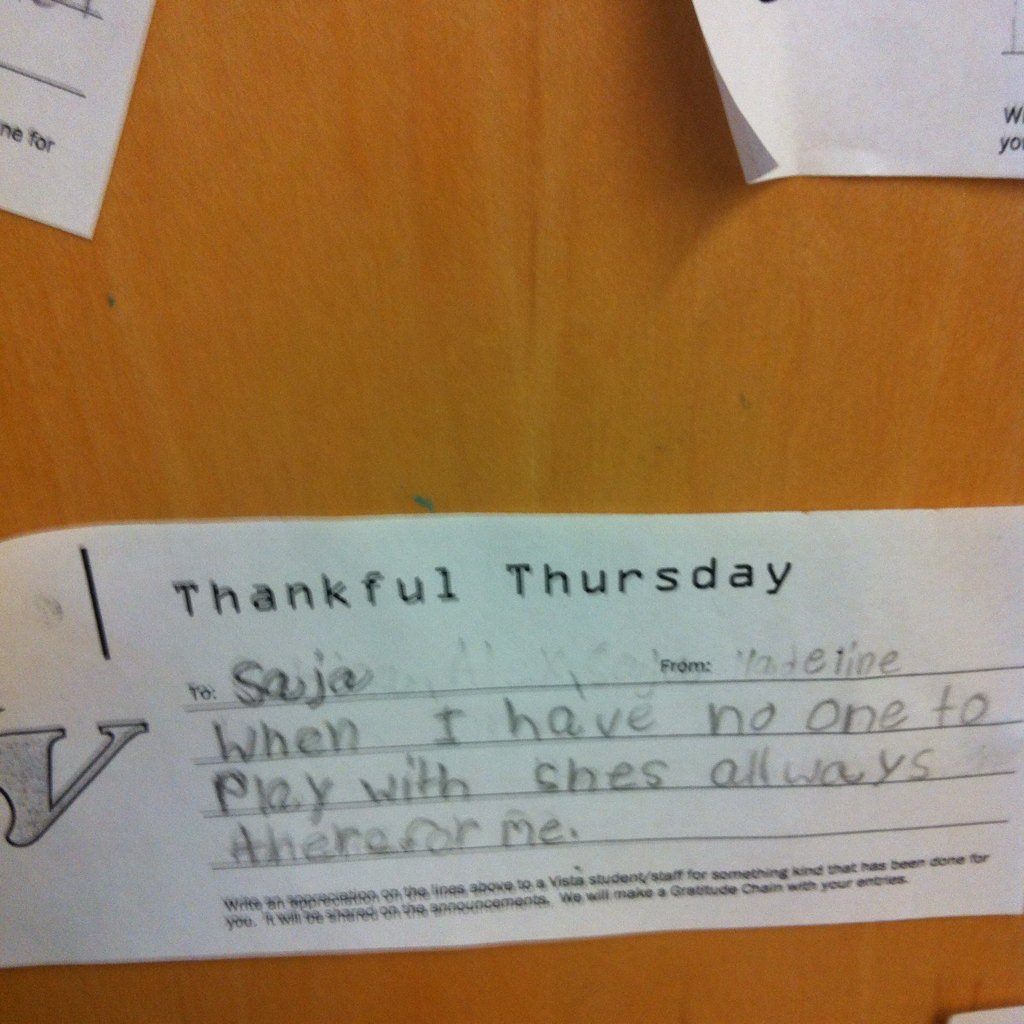 ne for
Wi
you
Thankful Thursday
To: Saja From: Madeline
When I have no one to
Play with shes allways
there for me.
V
Write an appreciation on the lines above to a Vista student/staff for something kind that has been done for
you. It will be shared on the announcements. We will make a Gratitude Chain with your entries.